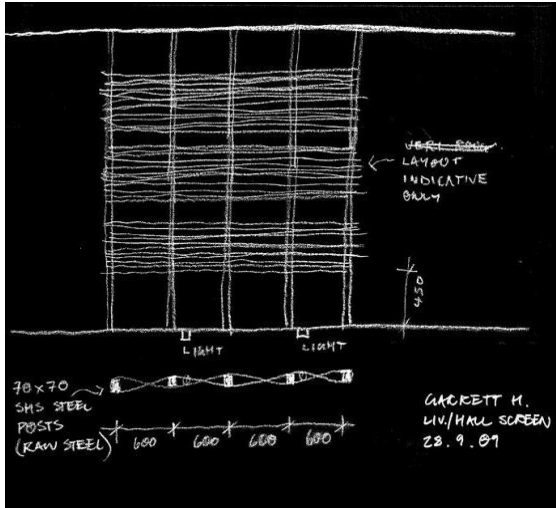 LAYOUT
INDICATIVE
ONLY
450
LIGHT
LIGHT
70x70
SHS STEEL
POSTS
(RAW STEEL)
600
600
600
600
GARRETT H.
LIV./HALL SCREEN
28.9.09